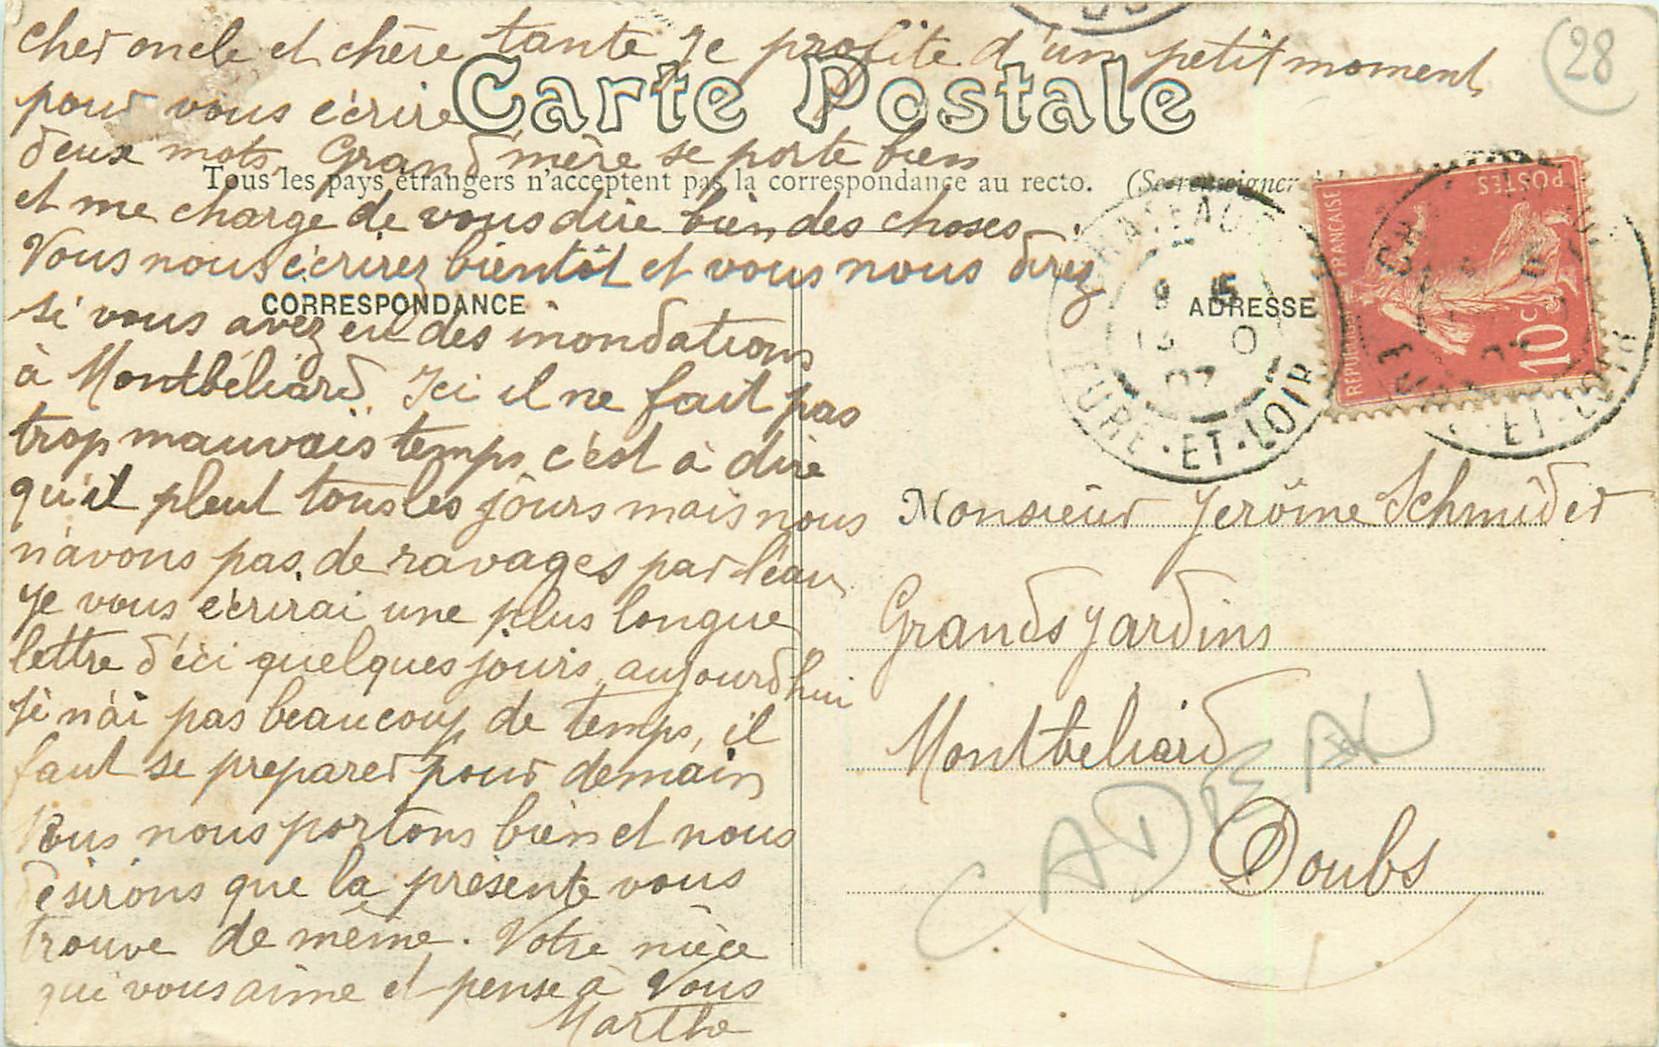 cher oncle et chère tante Je profite d'un petit moment
pour vous écrire
Carte Postale
deux mots. Grand mère se porte bien
Tous les pays étrangers n'acceptent pas la correspondance au recto. (Se renseigner
et me charge de vous dire bien des choses.
Vous nous écrirez bientôt et vous nous direz
CORRESPONDANCE
si vous avez eu des inondations
à Montbéliard. Ici il ne fait pas
trop mauvais temps c'est à dire
qu'il pleut tous les jours mais nous
n'avons pas de ravages par l'eau
Je vous écrirai une plus longue
lettre d'ici quelques jours, aujourd'hui
je n'ai pas beaucoup de temps, il
faut se preparer pour demain
Nous nous portons bien et nous
désirons que la présente vous
trouve de même. Votre nièce
qui vous aime et pense à Vous
Marthe
28
ADRESSE
EURE-ET-LOIR
07
REPUBLIQUE FRANCAISE
POSTES
10 c
ET-LOIR
Monsieur Jerôme Schmider
Grands Jardins
Montbeliard
Doubs
CADEAU